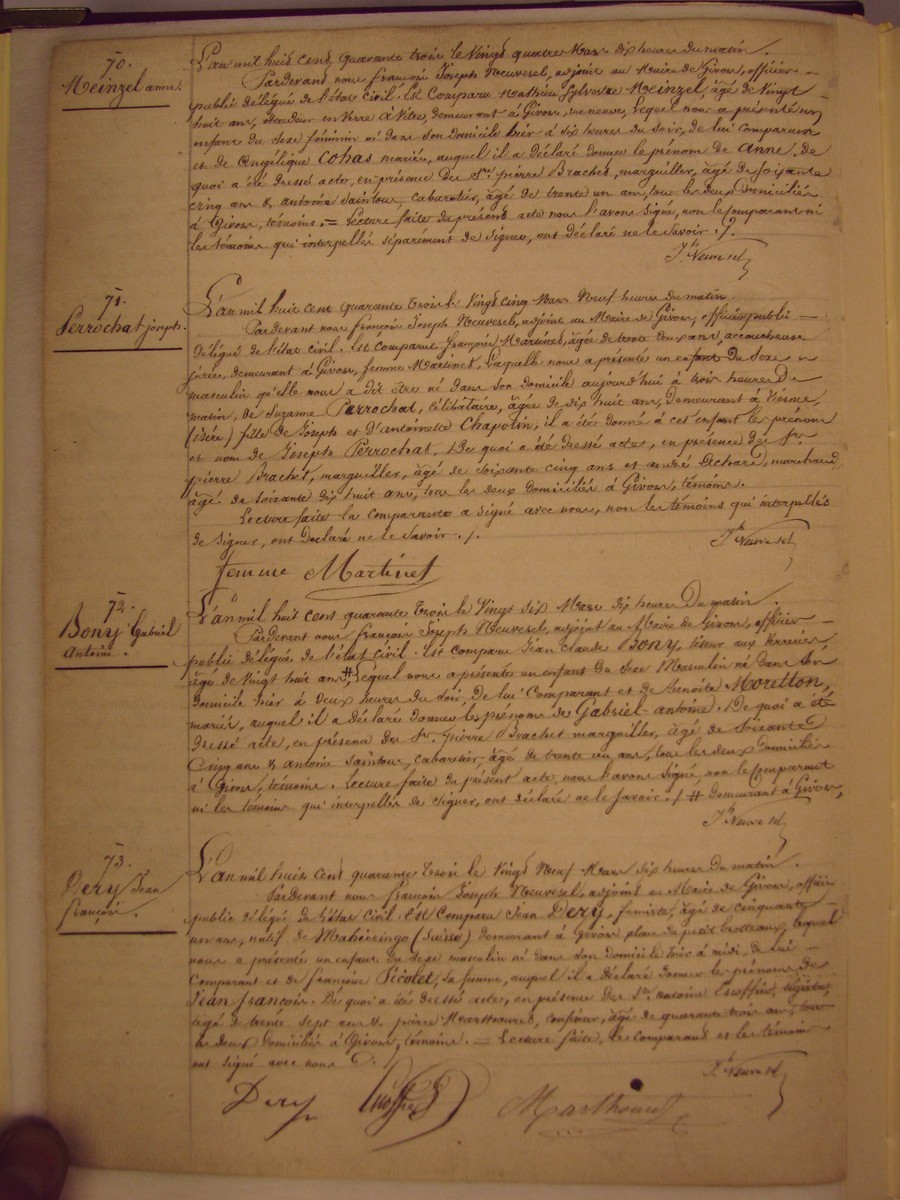 70.
Meinzel anne.
L'an mil huit cent quarante trois le Vingt quatre Mars dix heures du matin.
Pardevant nous françois Joseph Neuvesel, adjoint au Maire de Givors, officier
public délégué de l'état civil. Est Comparu Mathieu Sylvestre Meinzel, âgé de Vingt
huit ans, étendeur en Verre à Vitre, demeurant à Givors, rue neuve, lequel nous a présenté un
enfant du Sexe féminin né dans son domicile hier à dix heures du Soir, de lui comparant
et de Angélique Cohas mariés, auquel il a déclaré donner le prénom de anne. de
quoi a été dressé acte, en présence des Srs pierre Brachet, marguillier, âgé de soixante
cinq ans & antoine Saintour, cabaretier, âgé de trente un ans, tous les deux domiciliés
à Givors, témoins. = Lecture faite du présent acte nous l'avons Signé, non le Comparant ni
les témoins qui interpellés séparément de Signer, ont déclaré ne le Savoir ./.
Jh Neuvesel
71.
Perrochat joseph.
L'an mil huit cent quarante trois le Vingt cinq Mars Neuf heures du matin.
Pardevant nous françois Joseph Neuvesel, adjoint au Maire de Givors, officier public
délégué de l'état civil. Est comparue françoise Martinet, âgée de trente ans, accoucheuse
jurée, demeurant à Givors, femme Martinet, Laquelle nous a présenté un enfant du Sexe
masculin qu'elle nous a dit être né dans son domicile aujourd'hui à trois heures Du
matin, de Suzanne Perrochat, célibataire, âgée de dix huit ans, demeurant à
(isère) fille de Joseph et d'Antoinette Chapolin, il a été donné à cet enfant le prénom
et nom de Joseph Perrochat. De quoi a été dressé acte, en présence des Srs
pierre Brachet, marguillier, âgé de Soixante cinq ans et andré Achard, marchand
âgé de soixante dix huit ans, tous les deux domiciliés à Givors, témoins.
Lecture faite la comparante a signé avec nous, non les témoins qui interpellés
de signer, ont déclaré ne le Savoir ./.
Jh Neuvesel
femme Martinet
72.
Bony Gabriel
Antoine.
L'an mil huit cent quarante trois le Vingt Six Mars dix heures Du matin.
Pardevant nous françois Joseph Neuvesel, adjoint au Maire de Givors, officier
public délégué de l'état civil. Est comparu Jean Claude Bony, tiseur aux Verreries,
âgé de Vingt huit ans,# Lequel nous a présenté un enfant du Sexe Masculin né dans Son
domicile hier à Deux heures du Soir, de lui Comparant et de benoite Moretton,
mariés, auquel il a déclaré donner les prénoms de Gabriel-antoine. De quoi a été
dressé acte, en présence des Srs pierre Brachet marguillier, âgé de Soixante
Cinq ans & antoine Saintour, cabaretier, âgé de trente un ans, tous les deux Domiciliés
à Givors, témoins. Lecture faite du présent acte, nous l'avons Signé, non le Comparant
ni les témoins qui interpellés de Signer, ont déclaré ne le Savoir ./. # demeurant à Givors,
Jh Neuvesel
73.
Dery Jean
françois.
L'an mil huit cent quarante trois le Vingt Neuf Mars dix heures Du matin.
Pardevant nous françois Joseph Neuvesel, adjoint au Maire de Givors, officier
public délégué de l'état civil. Est Comparu Jean Dery, âgé de cinquante
un ans, natif de (Suisse) demeurant à Givors place du petit brotteaux, lequel
nous a présenté un enfant du Sexe masculin né dans son domicile hier à midi, de lui
Comparant et de françoise Picolet, sa femme, auquel il a déclaré donner les prénoms de
Jean françois. De quoi a été dressé acte, en présence des Srs antoine
âgé de trente sept ans & pierre Marthouret, âgé de quarante trois ans, tous
les deux domiciliés à Givors, témoins. = Lecture faite, le comparant et les témoins
ont signé avec nous
Jh Neuvesel
Dery
Marthouret